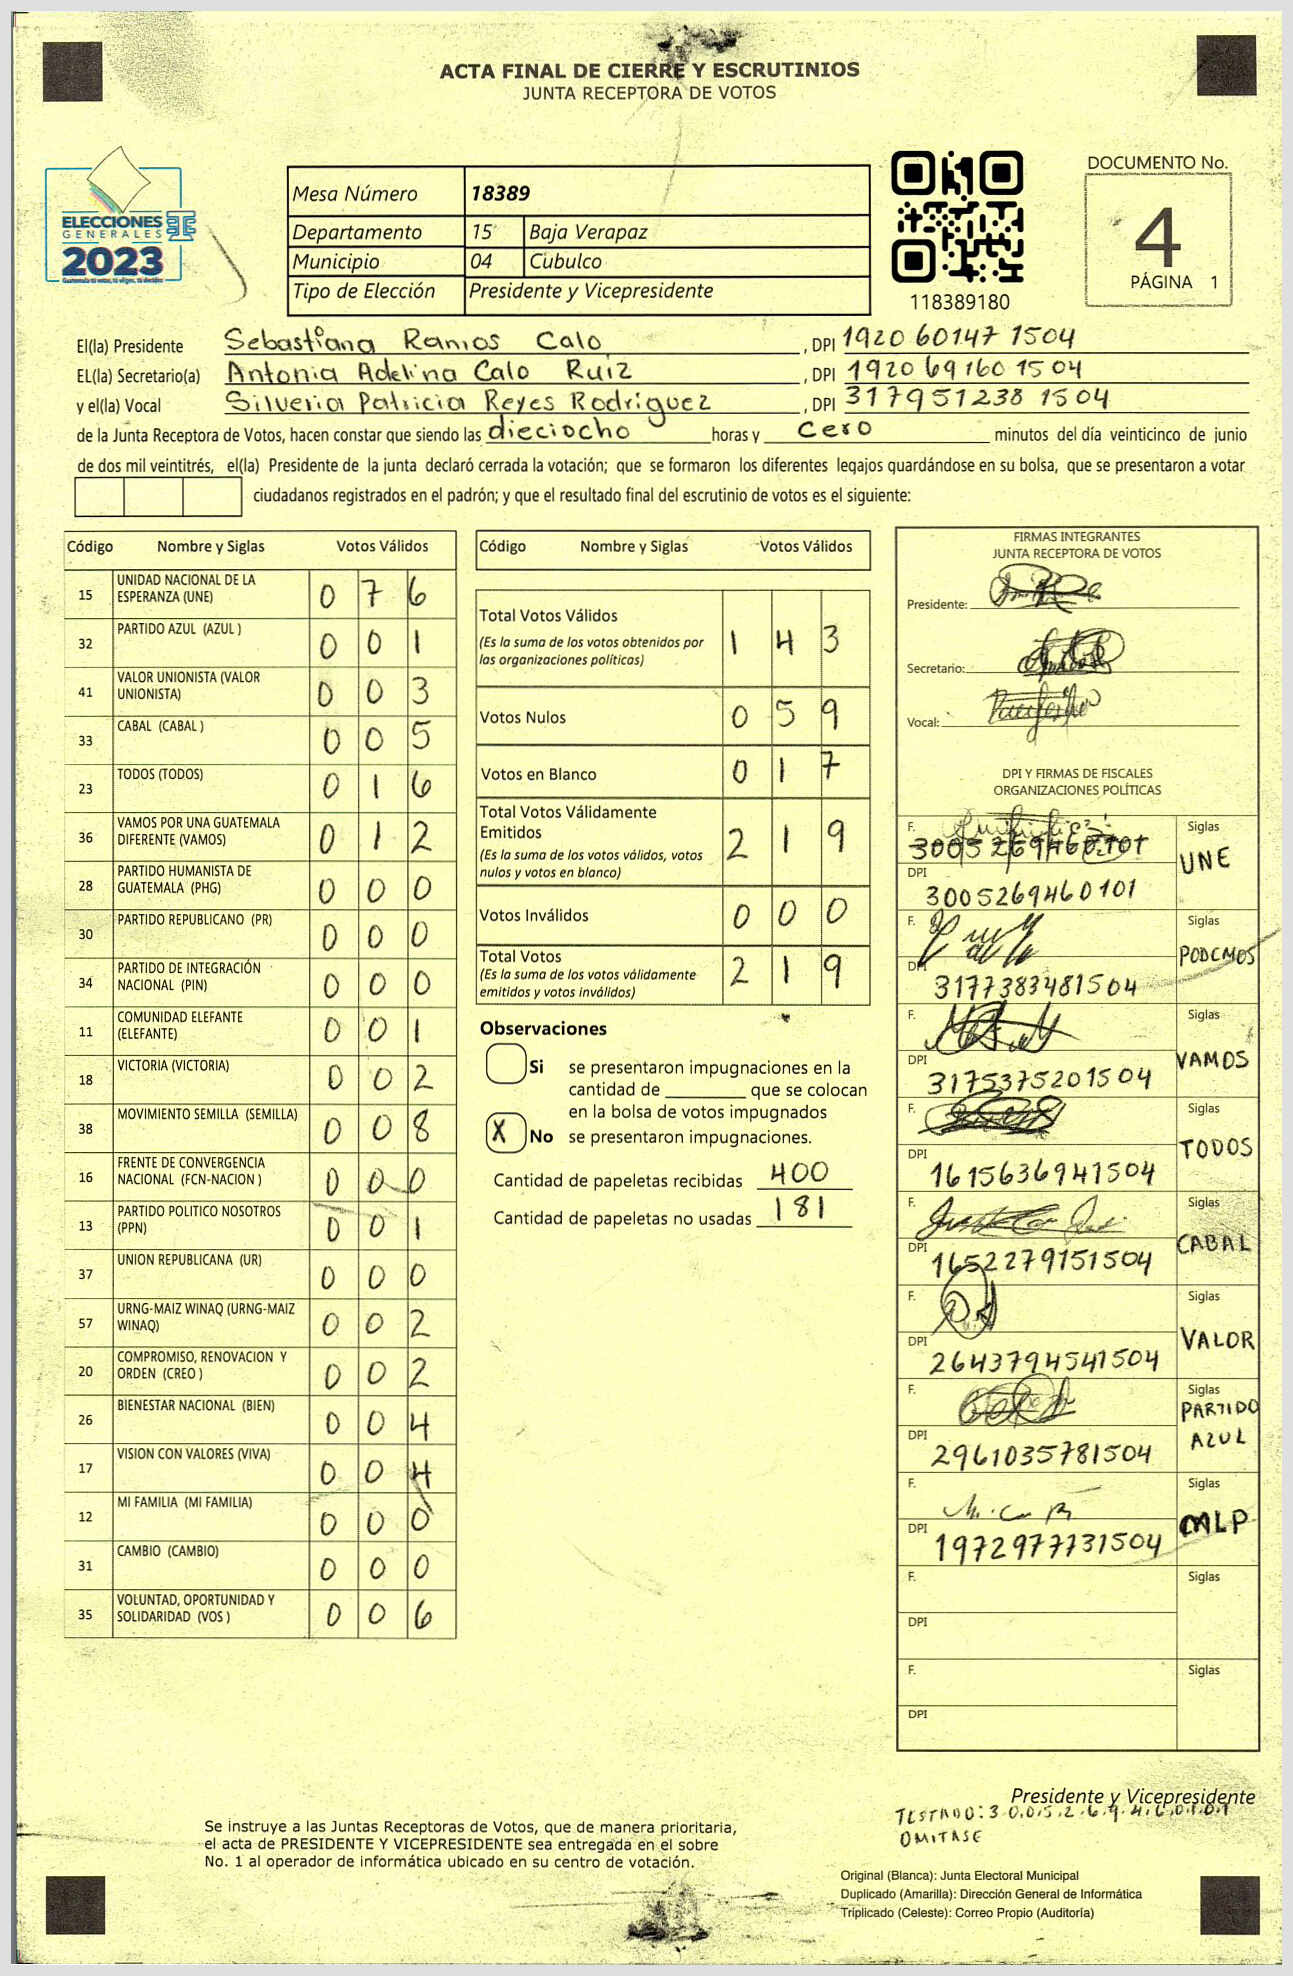 ACTA FINAL DE CIERRE Y ESCRUTINIOS
JUNTA RECEPTORA DE VOTOS
ELECCIONES
GENERALES
2023
Mesa Número 18389
Departamento 15 Baja Verapaz
Municipio 04 Cubulco
Tipo de Elección Presidente y Vicepresidente
118389180
DOCUMENTO No.
4
PÁGINA 1
El(la) Presidente Sebastiana Ramos Calo , DPI 1920 60147 1504
EL(la) Secretario(a) Antonia Adelina Calo Ruiz , DPI 1920 69160 1504
y el(la) Vocal Silveria Patricia Reyes Rodriguez , DPI 317951238 1504
de la Junta Receptora de Votos, hacen constar que siendo las dieciocho horas y cero minutos del día veinticinco de junio
de dos mil veintitrés, el(la) Presidente de la junta declaró cerrada la votación; que se formaron los diferentes legajos guardándose en su bolsa, que se presentaron a votar
ciudadanos registrados en el padrón; y que el resultado final del escrutinio de votos es el siguiente:
Código Nombre y Siglas Votos Válidos
15 UNIDAD NACIONAL DE LA ESPERANZA (UNE) 0 7 6
32 PARTIDO AZUL (AZUL ) 0 0 1
41 VALOR UNIONISTA (VALOR UNIONISTA) 0 0 3
33 CABAL (CABAL ) 0 0 5
23 TODOS (TODOS) 0 1 6
36 VAMOS POR UNA GUATEMALA DIFERENTE (VAMOS) 0 1 2
28 PARTIDO HUMANISTA DE GUATEMALA (PHG) 0 0 0
30 PARTIDO REPUBLICANO (PR) 0 0 0
34 PARTIDO DE INTEGRACIÓN NACIONAL (PIN) 0 0 0
11 COMUNIDAD ELEFANTE (ELEFANTE) 0 0 1
18 VICTORIA (VICTORIA) 0 0 2
38 MOVIMIENTO SEMILLA (SEMILLA) 0 0 8
16 FRENTE DE CONVERGENCIA NACIONAL (FCN-NACION ) 0 0 0
13 PARTIDO POLITICO NOSOTROS (PPN) 0 0 1
37 UNION REPUBLICANA (UR) 0 0 0
57 URNG-MAIZ WINAQ (URNG-MAIZ WINAQ) 0 0 2
20 COMPROMISO, RENOVACION Y ORDEN (CREO ) 0 0 2
26 BIENESTAR NACIONAL (BIEN) 0 0 4
17 VISION CON VALORES (VIVA) 0 0 4
12 MI FAMILIA (MI FAMILIA) 0 0 0
31 CAMBIO (CAMBIO) 0 0 0
35 VOLUNTAD, OPORTUNIDAD Y SOLIDARIDAD (VOS ) 0 0 6
Código Nombre y Siglas Votos Válidos
Total Votos Válidos 1 4 3
(Es la suma de los votos obtenidos por
las organizaciones políticas)
Votos Nulos 0 5 9
Votos en Blanco 0 1 7
Total Votos Válidamente
Emitidos 2 1 9
(Es la suma de los votos válidos, votos
nulos y votos en blanco)
Votos Inválidos 0 0 0
Total Votos 2 1 9
(Es la suma de los votos válidamente
emitidos y votos inválidos)
Observaciones
Si se presentaron impugnaciones en la
cantidad de ________ que se colocan
en la bolsa de votos impugnados
X No se presentaron impugnaciones.
Cantidad de papeletas recibidas 400
Cantidad de papeletas no usadas 181
FIRMAS INTEGRANTES
JUNTA RECEPTORA DE VOTOS
Presidente:
Secretario:
Vocal:
DPI Y FIRMAS DE FISCALES
ORGANIZACIONES POLÍTICAS
F. 3005269460101 Siglas
DPI 3005269460101 UNE
F. Siglas
DPI 3177383481504 PODEMOS
F. Siglas
DPI 3175375201504 VAMOS
F. Siglas
DPI 1615636941504 TODOS
F. Siglas
DPI 1652279151504 CABAL
F. Siglas
DPI 2643794541504 VALOR
F. Siglas
DPI 2961035781504 PARTIDO AZUL
F. Siglas
DPI 1972977731504 MLP
F. Siglas
DPI
F. Siglas
DPI
Presidente y Vicepresidente
TESTADO: 3.0.0.5.2.6.9.4.6.0.1.0.1
OMITASE
Se instruye a las Juntas Receptoras de Votos, que de manera prioritaria,
el acta de PRESIDENTE Y VICEPRESIDENTE sea entregada en el sobre
No. 1 al operador de informática ubicado en su centro de votación.
Original (Blanca): Junta Electoral Municipal
Duplicado (Amarilla): Dirección General de Informática
Triplicado (Celeste): Correo Propio (Auditoría)